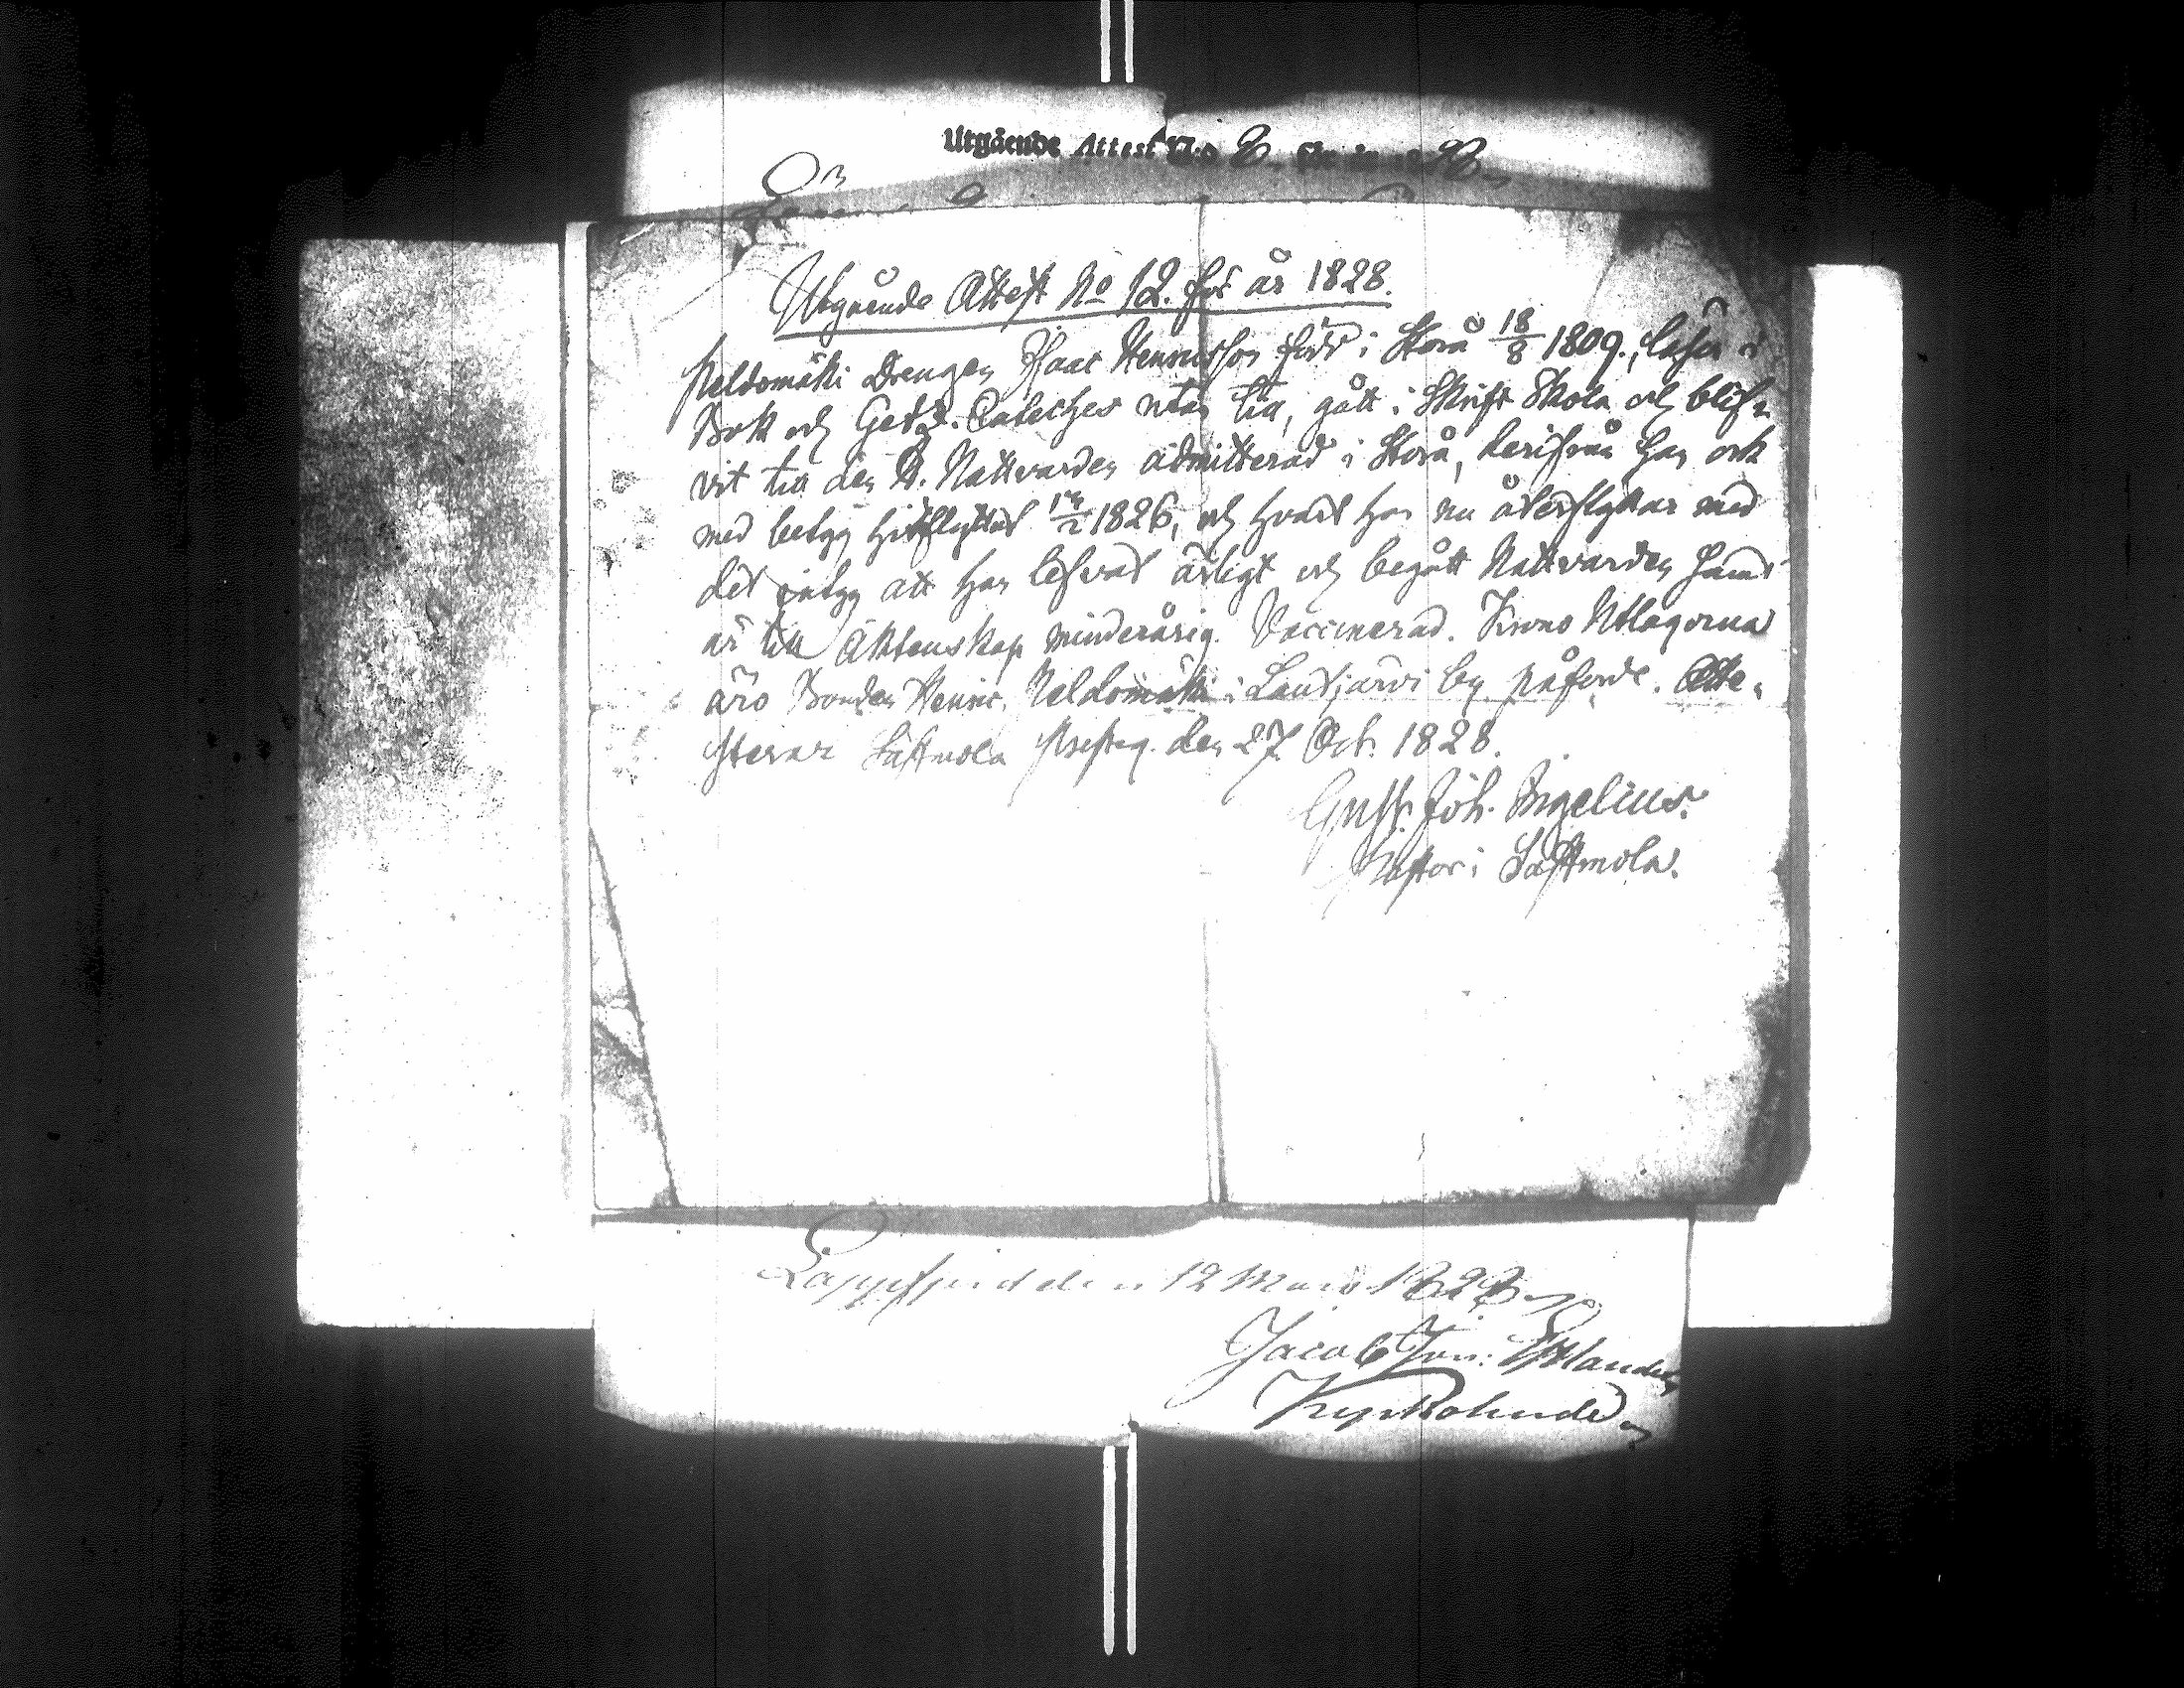 Utgående Attest N:o 2. för år 1828
Utgående Attest No 12. för år 1828.
Peldomäki Drengen Isaac Henricsson född i Storå 18/8 1809., läser i
Bok och Getz. Cateches utan till, gått i Skrift Skola och blif-
vit till den H. Nattvarden admitterad i Storå, derifrån han ock
med betyg hitflyttat 1826, och hvart han nu återflyttar med
det intyg att han lefvat ärligt och begått Nattvarden samt
är till Äktenskap minderårig. Vaccinerad. Krono Utlagorna
äro Bonden Henric Peldomäki i Lautjärvi by påförde. Atte-
sterar Sastmola Prestg. den 27 Oct. 1828.
Gust. Joh. Bigelius.
Pastor i Sastmola.
Lappfjerd den 12 Mars 1828
Jacob Jon: